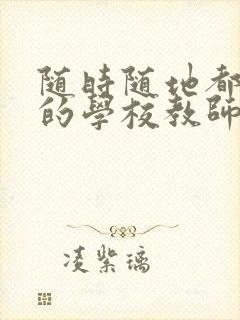 随時随地都
的學校教師
凌紫璃